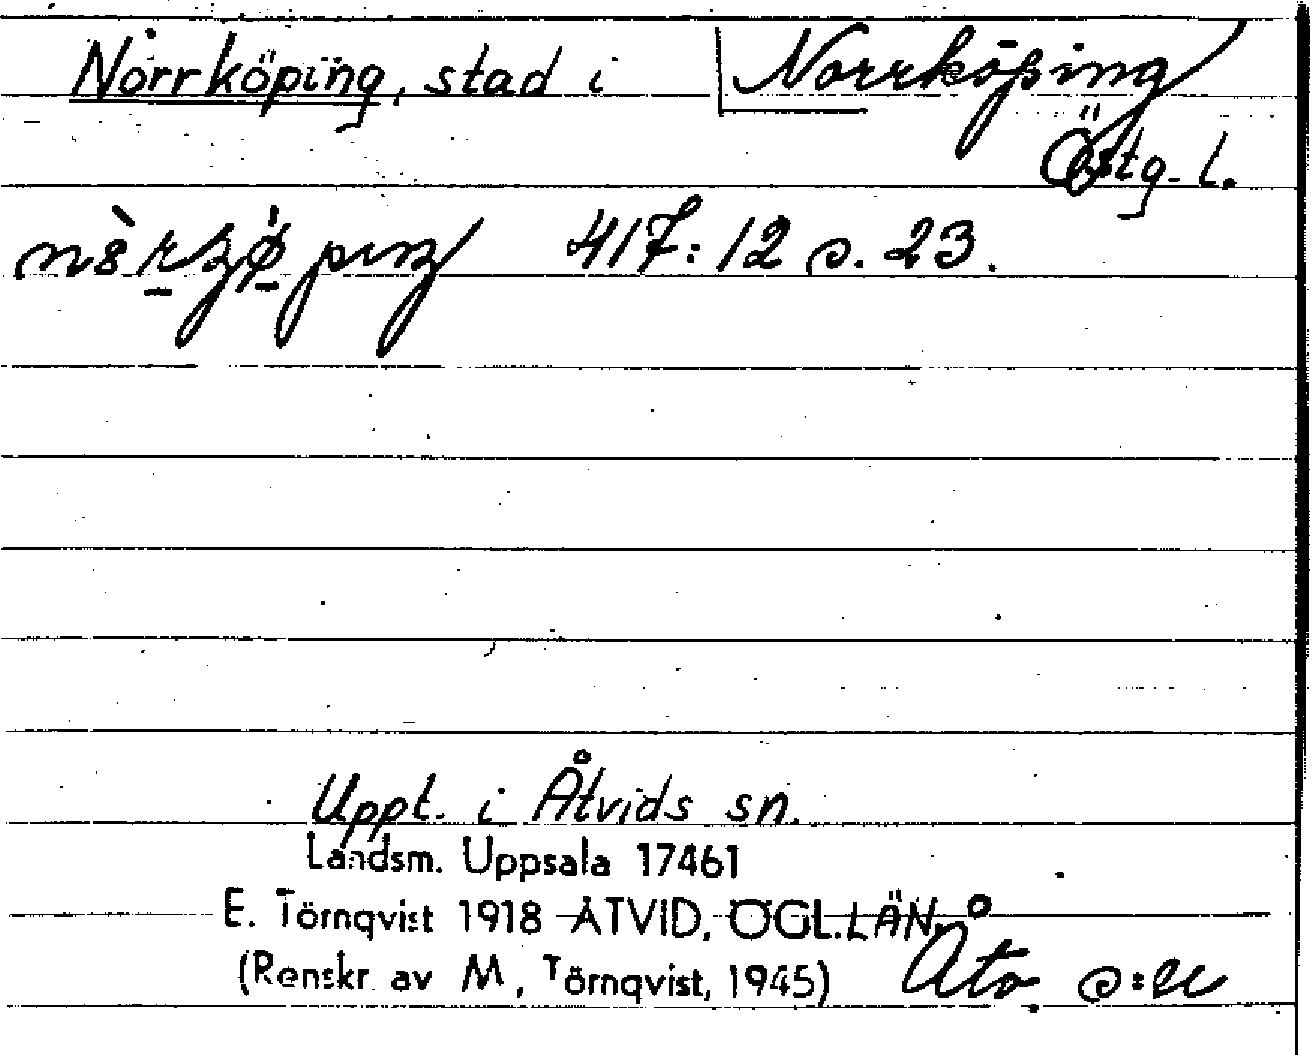 Norrköping, stad i Norrköping
Östg. l.
417:12 s. 23.
Uppt. i Åtvids sn.
Landsm. Uppsala 17461
E. Törnqvist 1918 ÅTVID, ÖGL. LÄN.
(Renskr. av M. Törnqvist, 1945)